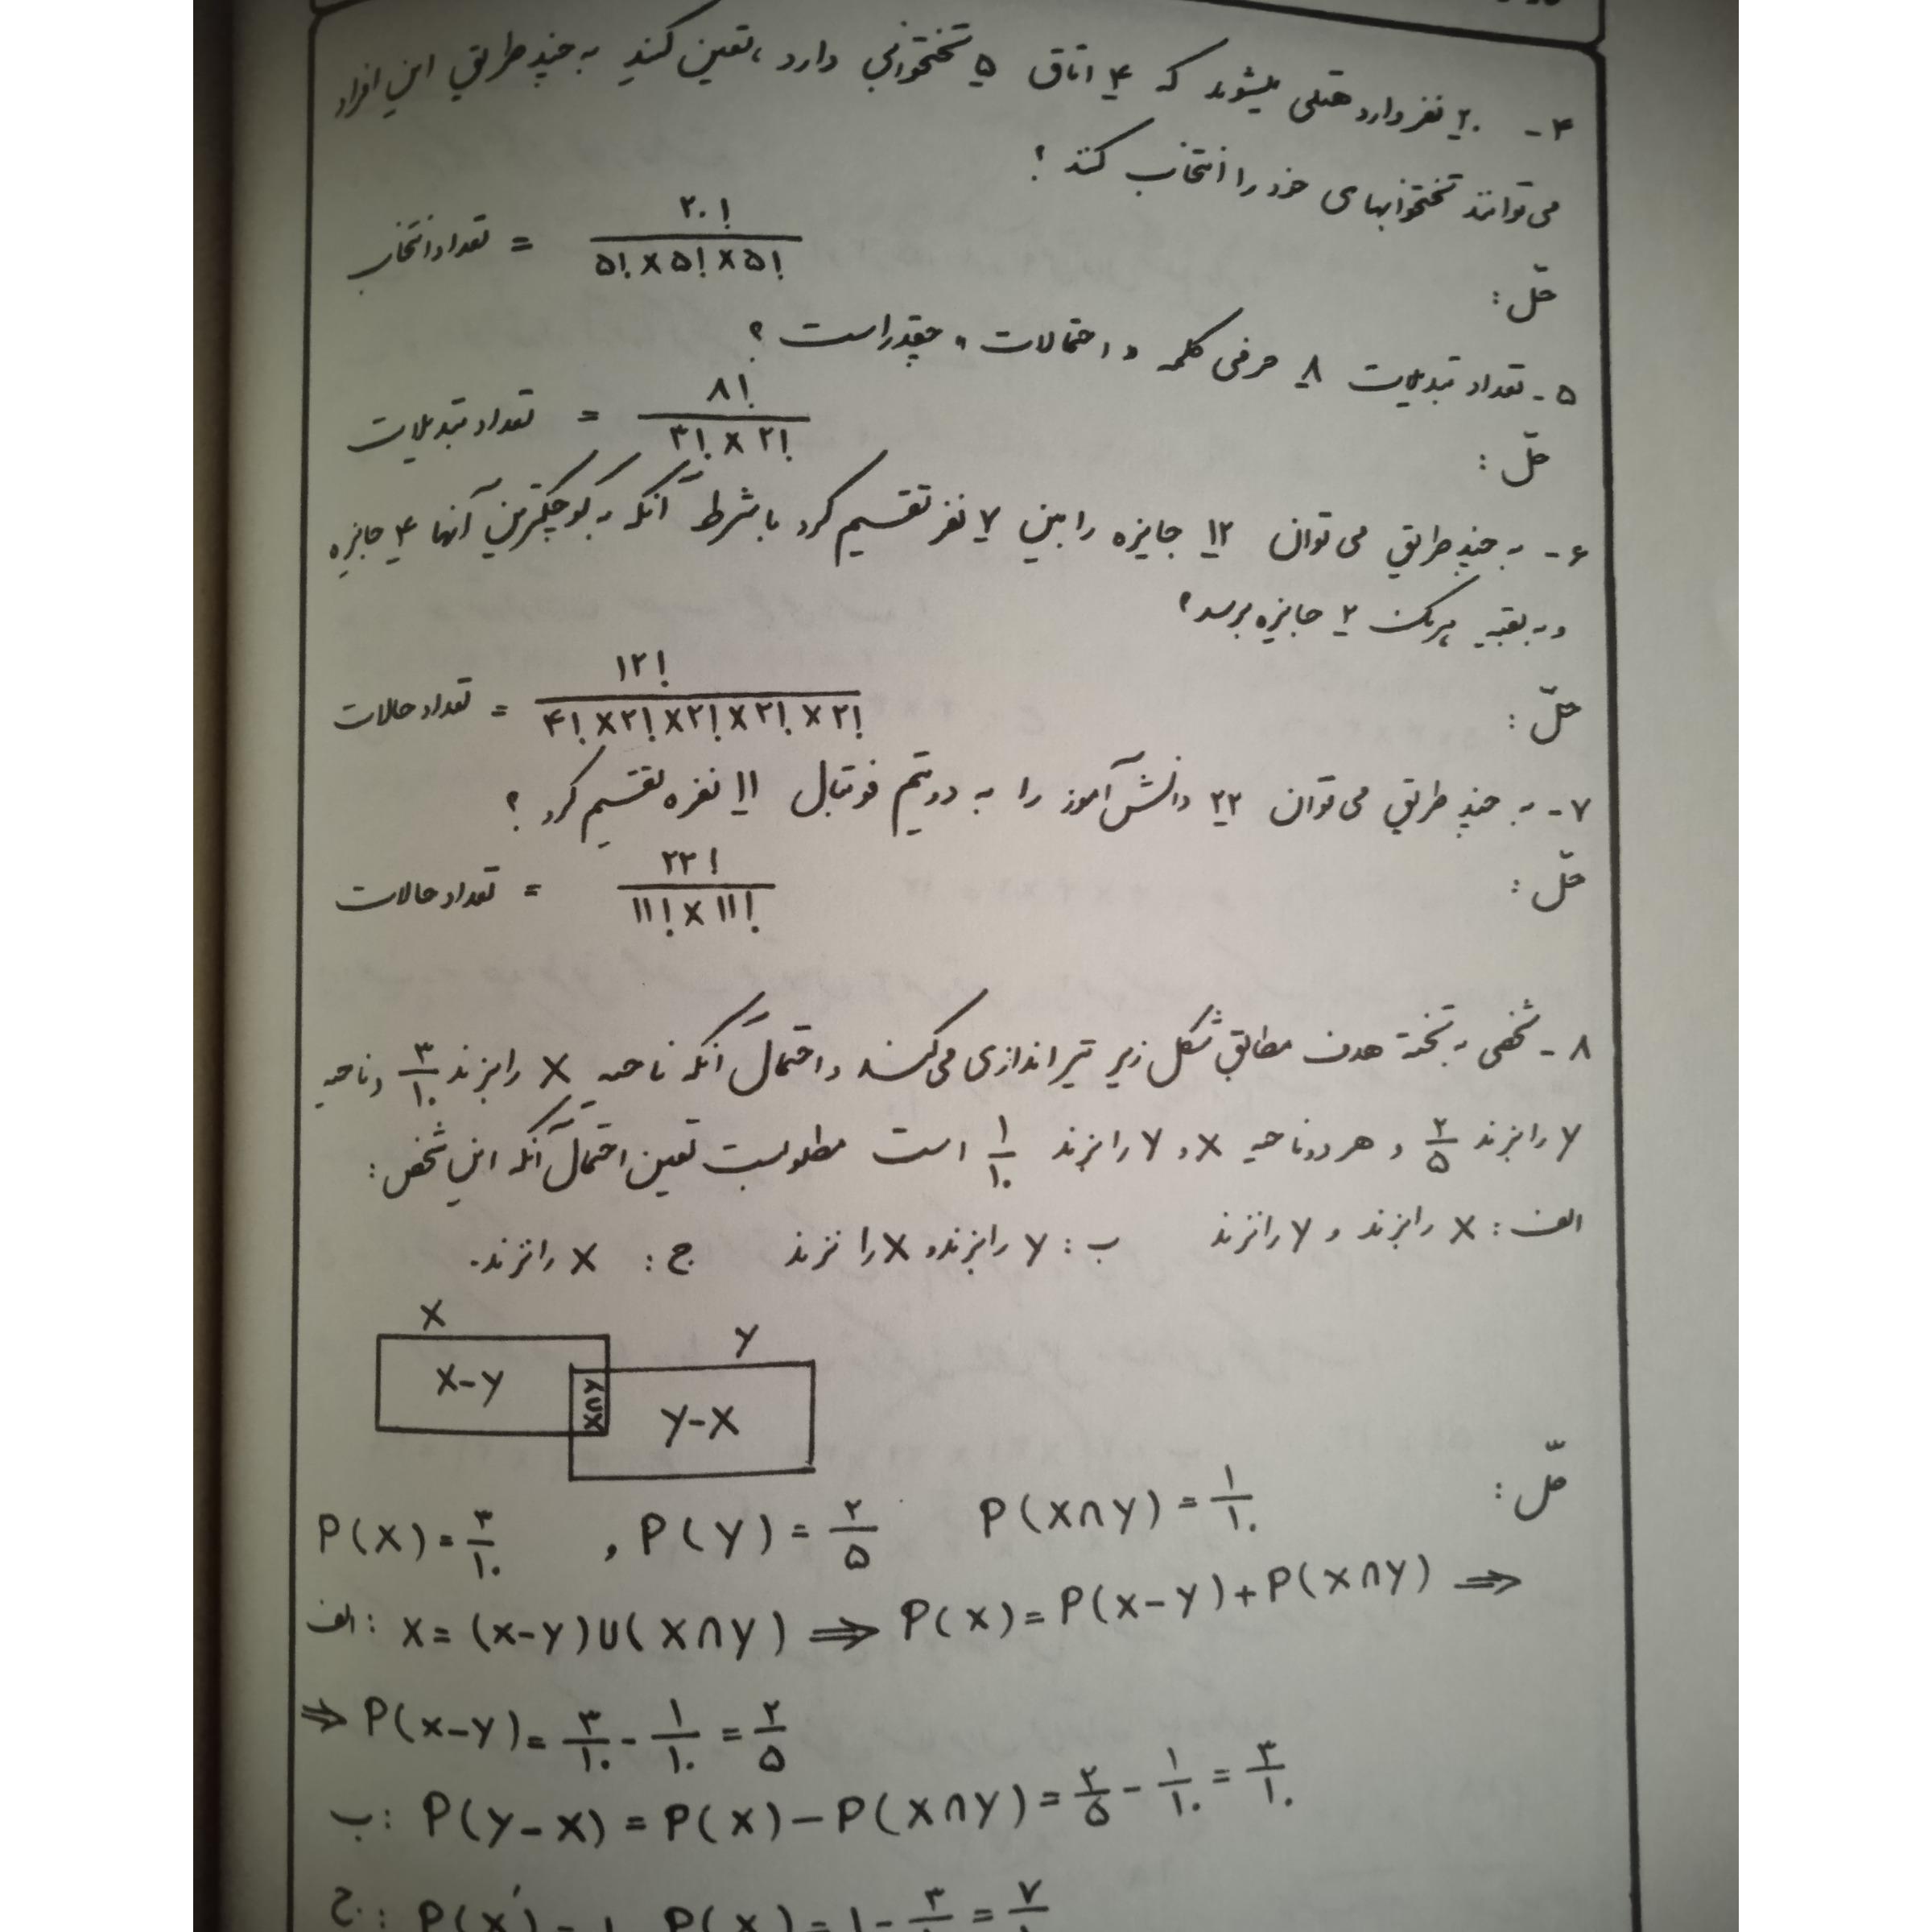 ۴ - ۲۰ نفر وارد هتلی میشوند که ۴ اتاق ۵ تختخوابی دارد ، تعین کنید به چند طریق این افراد
می توانند تختخوابهای خود را انتخاب کنند ؟
حلّ : تعداد انتخاب = ۲۰! / ۵! × ۵! × ۵!
۵ - تعداد تبدیلات ۸ حرفی کلمه « احتمالات » چقدر است ؟
حلّ : تعداد تبدیلات = ۸! / ۳! × ۲!
۶ - به چند طریق می توان ۱۲ جایزه را بین ۷ نفر تقسیم کرد با شرط آنکه به کوچکترین آنها ۴ جایزه
و به بقیه هریک ۲ جایزه برسد ؟
حلّ : تعداد حالات = ۱۲! / ۴! × ۲! × ۲! × ۲! × ۲!
۷ - به چند طریق می توان ۲۲ دانش آموز را به دو تیم فوتبال ۱۱ نفره تقسیم کرد ؟
حلّ : تعداد حالات = ۲۲! / ۱۱! × ۱۱!
۸ - شخصی به تخته هدف مطابق شکل زیر تیراندازی می کند و احتمال آنکه ناحیه X را بزند ۳/۱۰ و ناحیه
Y را بزند ۲/۵ و هر دو ناحیه X و Y را بزند ۱/۱۰ است مطلوبست تعین احتمال آنکه این شخص :
الف : X را بزند و Y را نزند ب : Y را بزند و X را نزند ج : X را نزند .
X
Y
X-Y
X∩Y
Y-X
حلّ :
P(X) = ۳/۱۰ , P(Y) = ۲/۵ P(X∩Y) = ۱/۱۰
الف : X = (X-Y)U(X∩Y) ⇒ P(X) = P(X-Y)+P(X∩Y) ⇒
⇒ P(X-Y) = ۳/۱۰ - ۱/۱۰ = ۲/۵
ب : P(Y-X) = P(X) - P(X∩Y) = ۲/۵ - ۱/۱۰ = ۳/۱۰
ج : P(X') = ۱ - P(X) = ۱ - ۳/۱۰ = ۷/۱۰